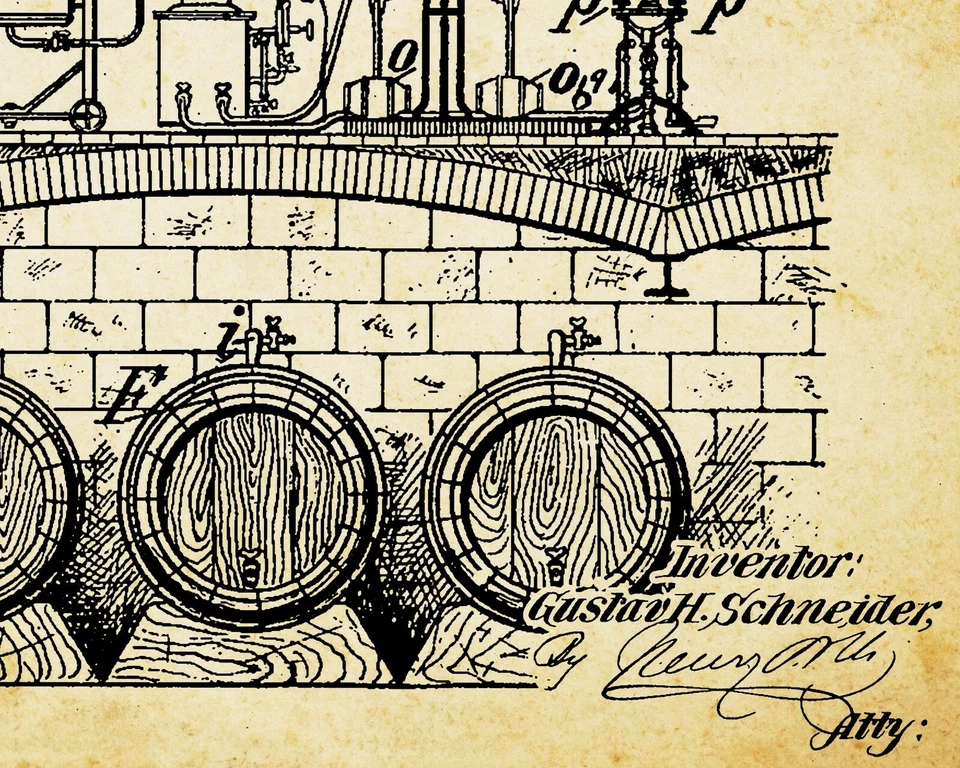 p p
O O
i
F
Inventor:
Gustav H. Schneider,
By
Atty: